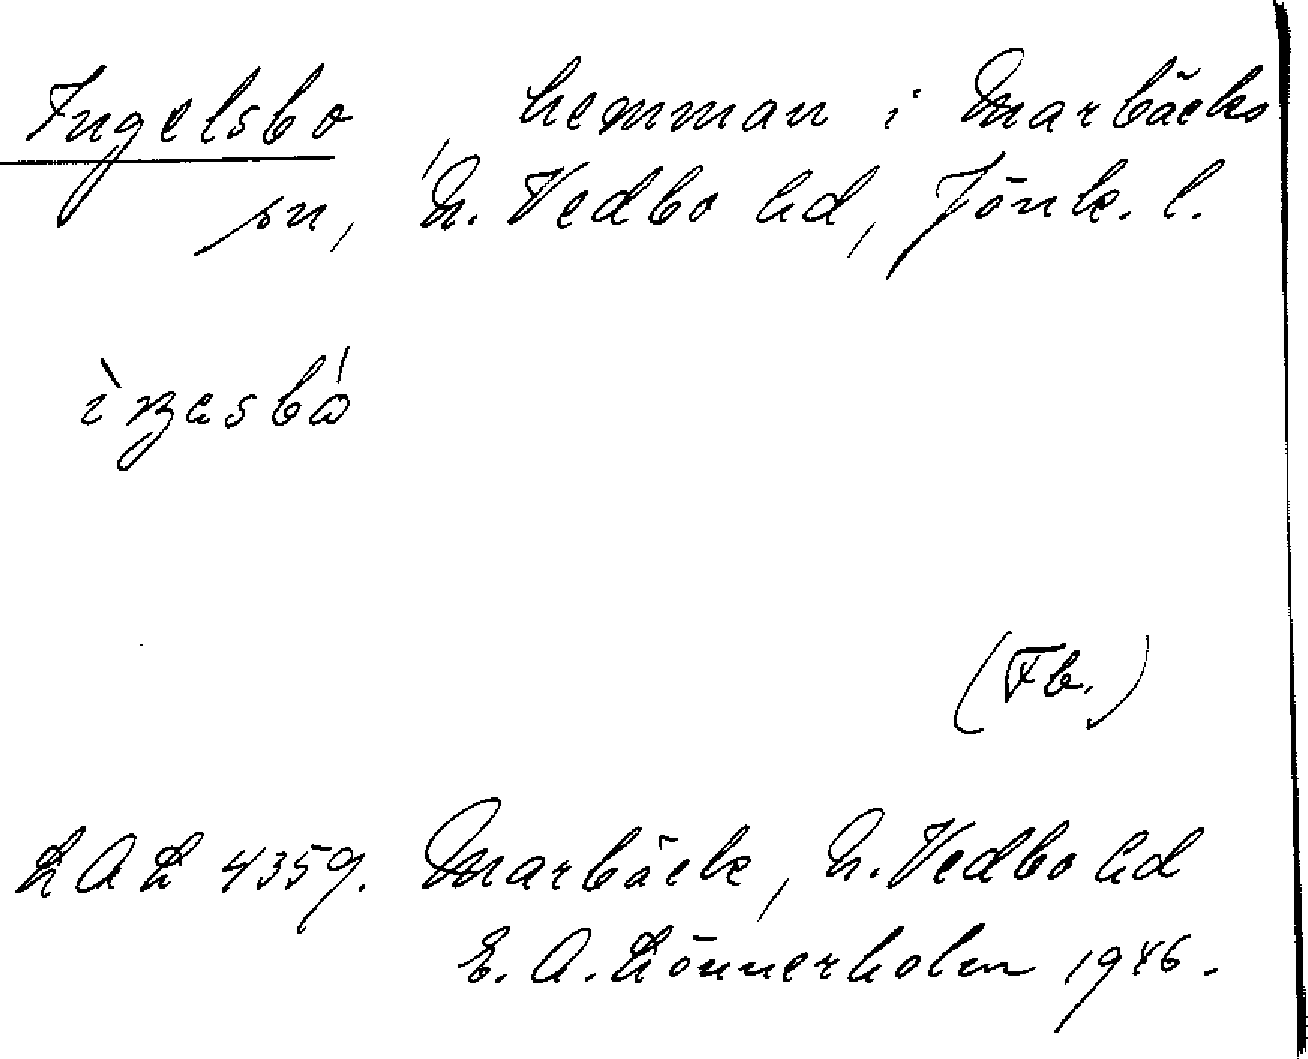 Ingelsbo, hemman i Marbäcks
sn, N. Vedbo hd, Jönk. l.
ìŋasbó
(Fb.)
LAL 4359. Marbäck, N. Vedbo hd
E. A. Lönnerholm 1946.